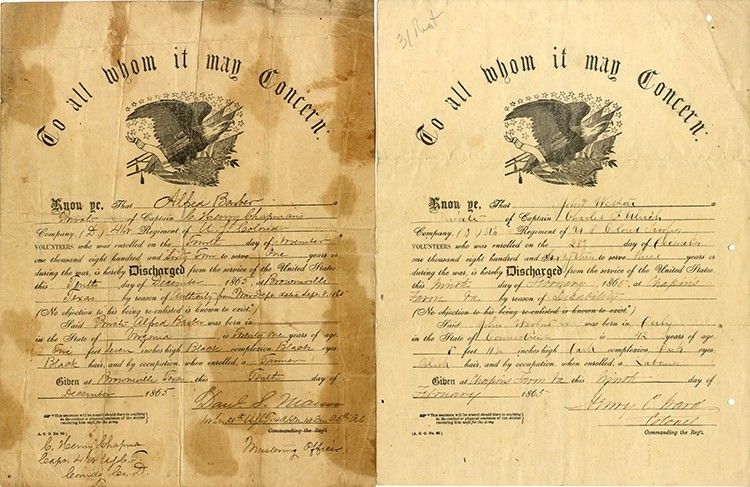 To all whom it may Concern:
Know ye, That Alfred Barber
Private of Captain C. Henry Chapman's
Company, (D,) 41st Regiment of U.S. Colored
VOLUNTEERS who was enrolled on the day of November
one thousand eight hundred and Sixty Four to serve One years or
during the war, is hereby Discharged from the service of the United States
this Tenth day of December 1865, at Brownsville
Texas by reason of Authority from War Dep. dated Sept. 8 1865
(No objection to his being re-enlisted is known to exist.)
Said Private Alfred Barber was born in
in the State of Virginia, is Twenty one years of age
Five feet Seven inches high, Black complexion, Black eyes
Black hair, and by occupation, when enrolled, a Farmer
Given at Brownsville Texas this Tenth day of
December 1865
This sentence will be erased should there be anything
in the conduct or physical condition of the soldier
rendering him unfit for the Army.
[A. G. O. No. 99.]
Commanding the Reg't.
Mustering Officer
C. Henry Chapman
Capt. 41st U.S.C.T.
Comdg Co. D.
31 Regt
To all whom it may Concern:
Know ye, That John Weston
Private of Captain Charles
Company, 31st Regiment of U.S. Colored Troops
VOLUNTEERS who was enrolled on the day of
one thousand eight hundred and Sixty three to serve three years or
during the war, is hereby Discharged from the service of the United States
this Ninth day of February 1865 at Chapins
Farm Va by reason of Disability
(No objection to his being re-enlisted is known to exist.)
Said John Weston was born in Derby
in the State of Connecticut is 42 years of age
5 feet inches high, Dark complexion, eyes
Dark hair, and by occupation, when enrolled, a Laborer
Given at Chapins Farm Va this Ninth day of
February 1865
This sentence will be erased should there be anything
in the conduct or physical condition of the soldier
rendering him unfit for the Army.
Henry C. Ward
Colonel
[A. G. O. No. 99.]
Commanding the Reg't.